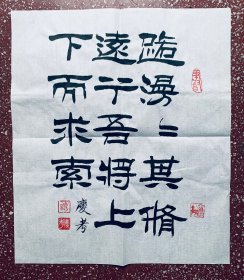 路漫〻其脩
遠兮吾將上
下而求索
慶